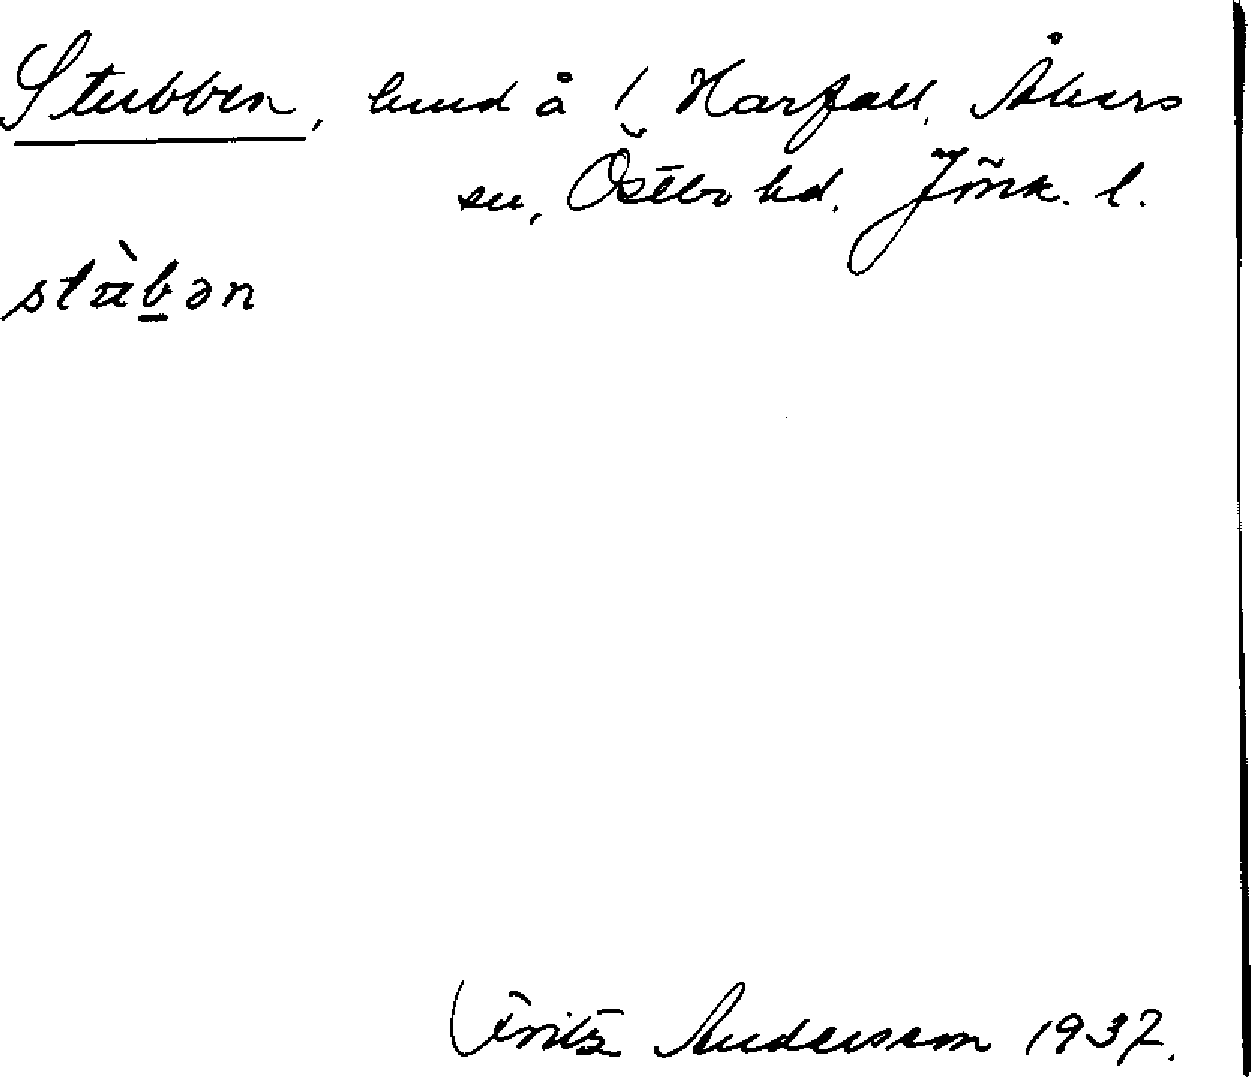 Stubben, lund å / Harfall, Åkers
sn, Östbo hd. Jönk. l.
stùbən
Fritz Andersson 1937.